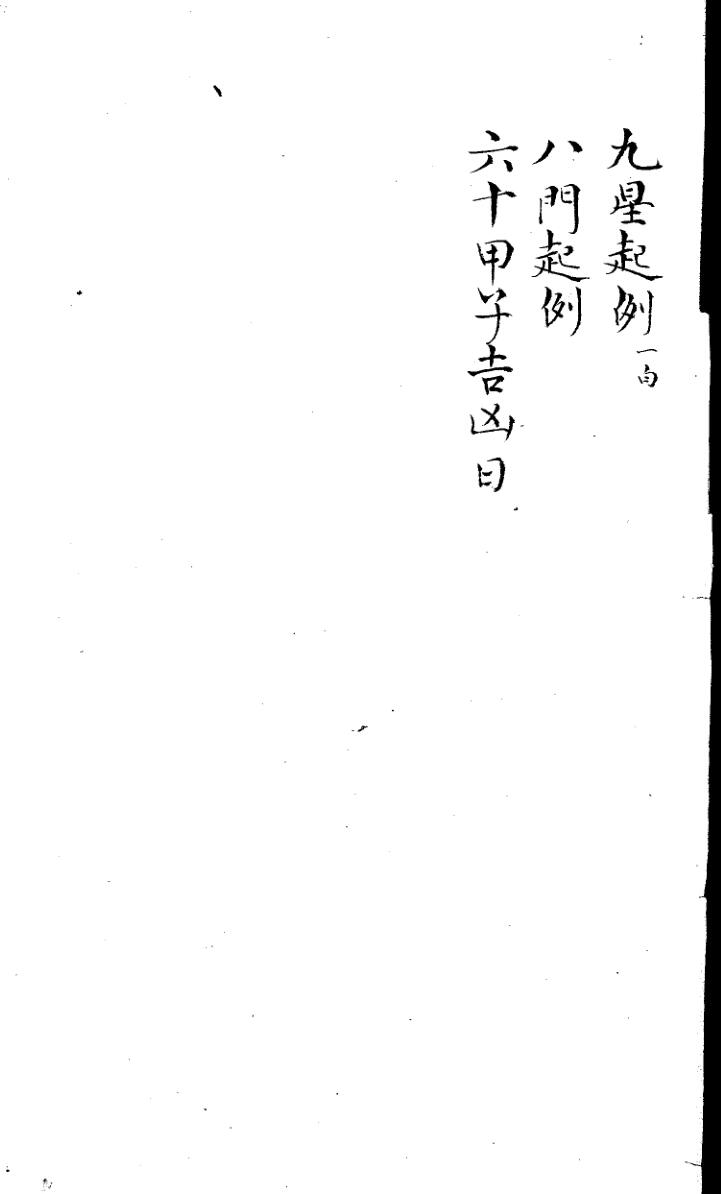 九星起例 一白
八門起例
六十甲子吉凶日